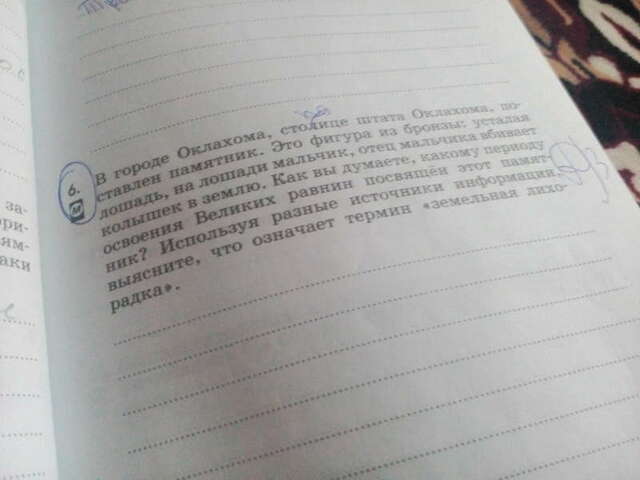 6.
В городе Оклахома, столице штата Оклахома, по-
ставлен памятник. Это фигура из бронзы: усталая
лошадь, на лошади мальчик, отец мальчика вбивает
колышек в землю. Как вы думаете, какому периоду
освоения Великих равнин посвящён этот памят-
ник? Используя разные источники информации,
выясните, что означает термин «земельная лихо-
радка».
за-
ям-
аки